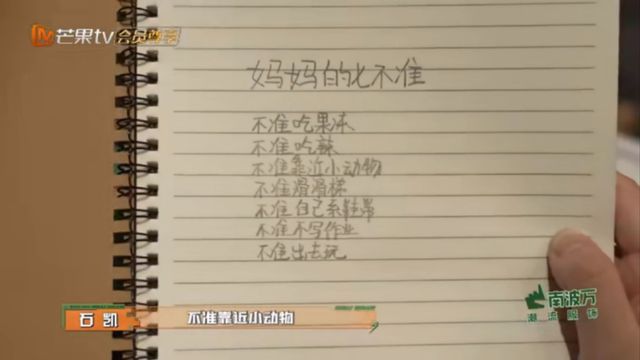 芒果tv 会员尊享
妈妈的七不准
不准吃果冻
不准吃辣
不准靠近小动物
不准滑滑梯
不准自己系鞋带
不准不写作业
不准出去玩
南波万
潮流服饰
石凯 不准靠近小动物